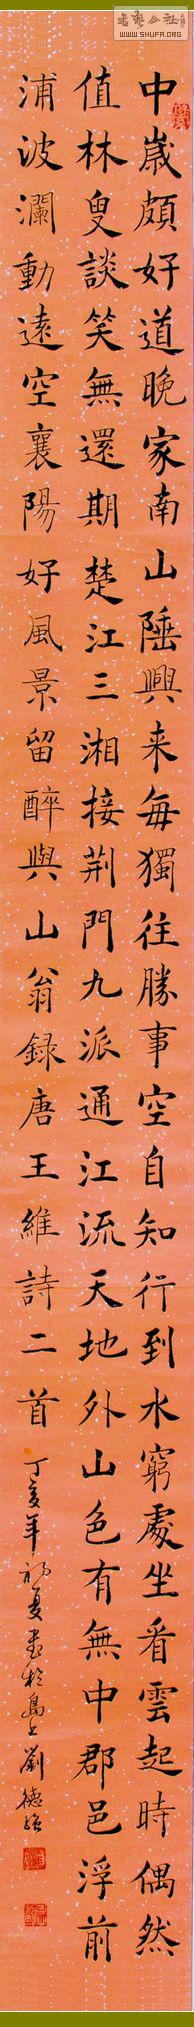 書藝公社
WWW.SHUFA.ORG
中歲頗好道晚家南山陲興来每獨往勝事空自知行到水窮處坐看雲起時偶然
值林叟談笑無還期楚江三湘接荆門九派通江流天地外山色有無中郡邑浮前
浦波瀾動遠空襄陽好風景留醉與山翁録唐王維詩二首
丁亥年初夏書於島上劉德